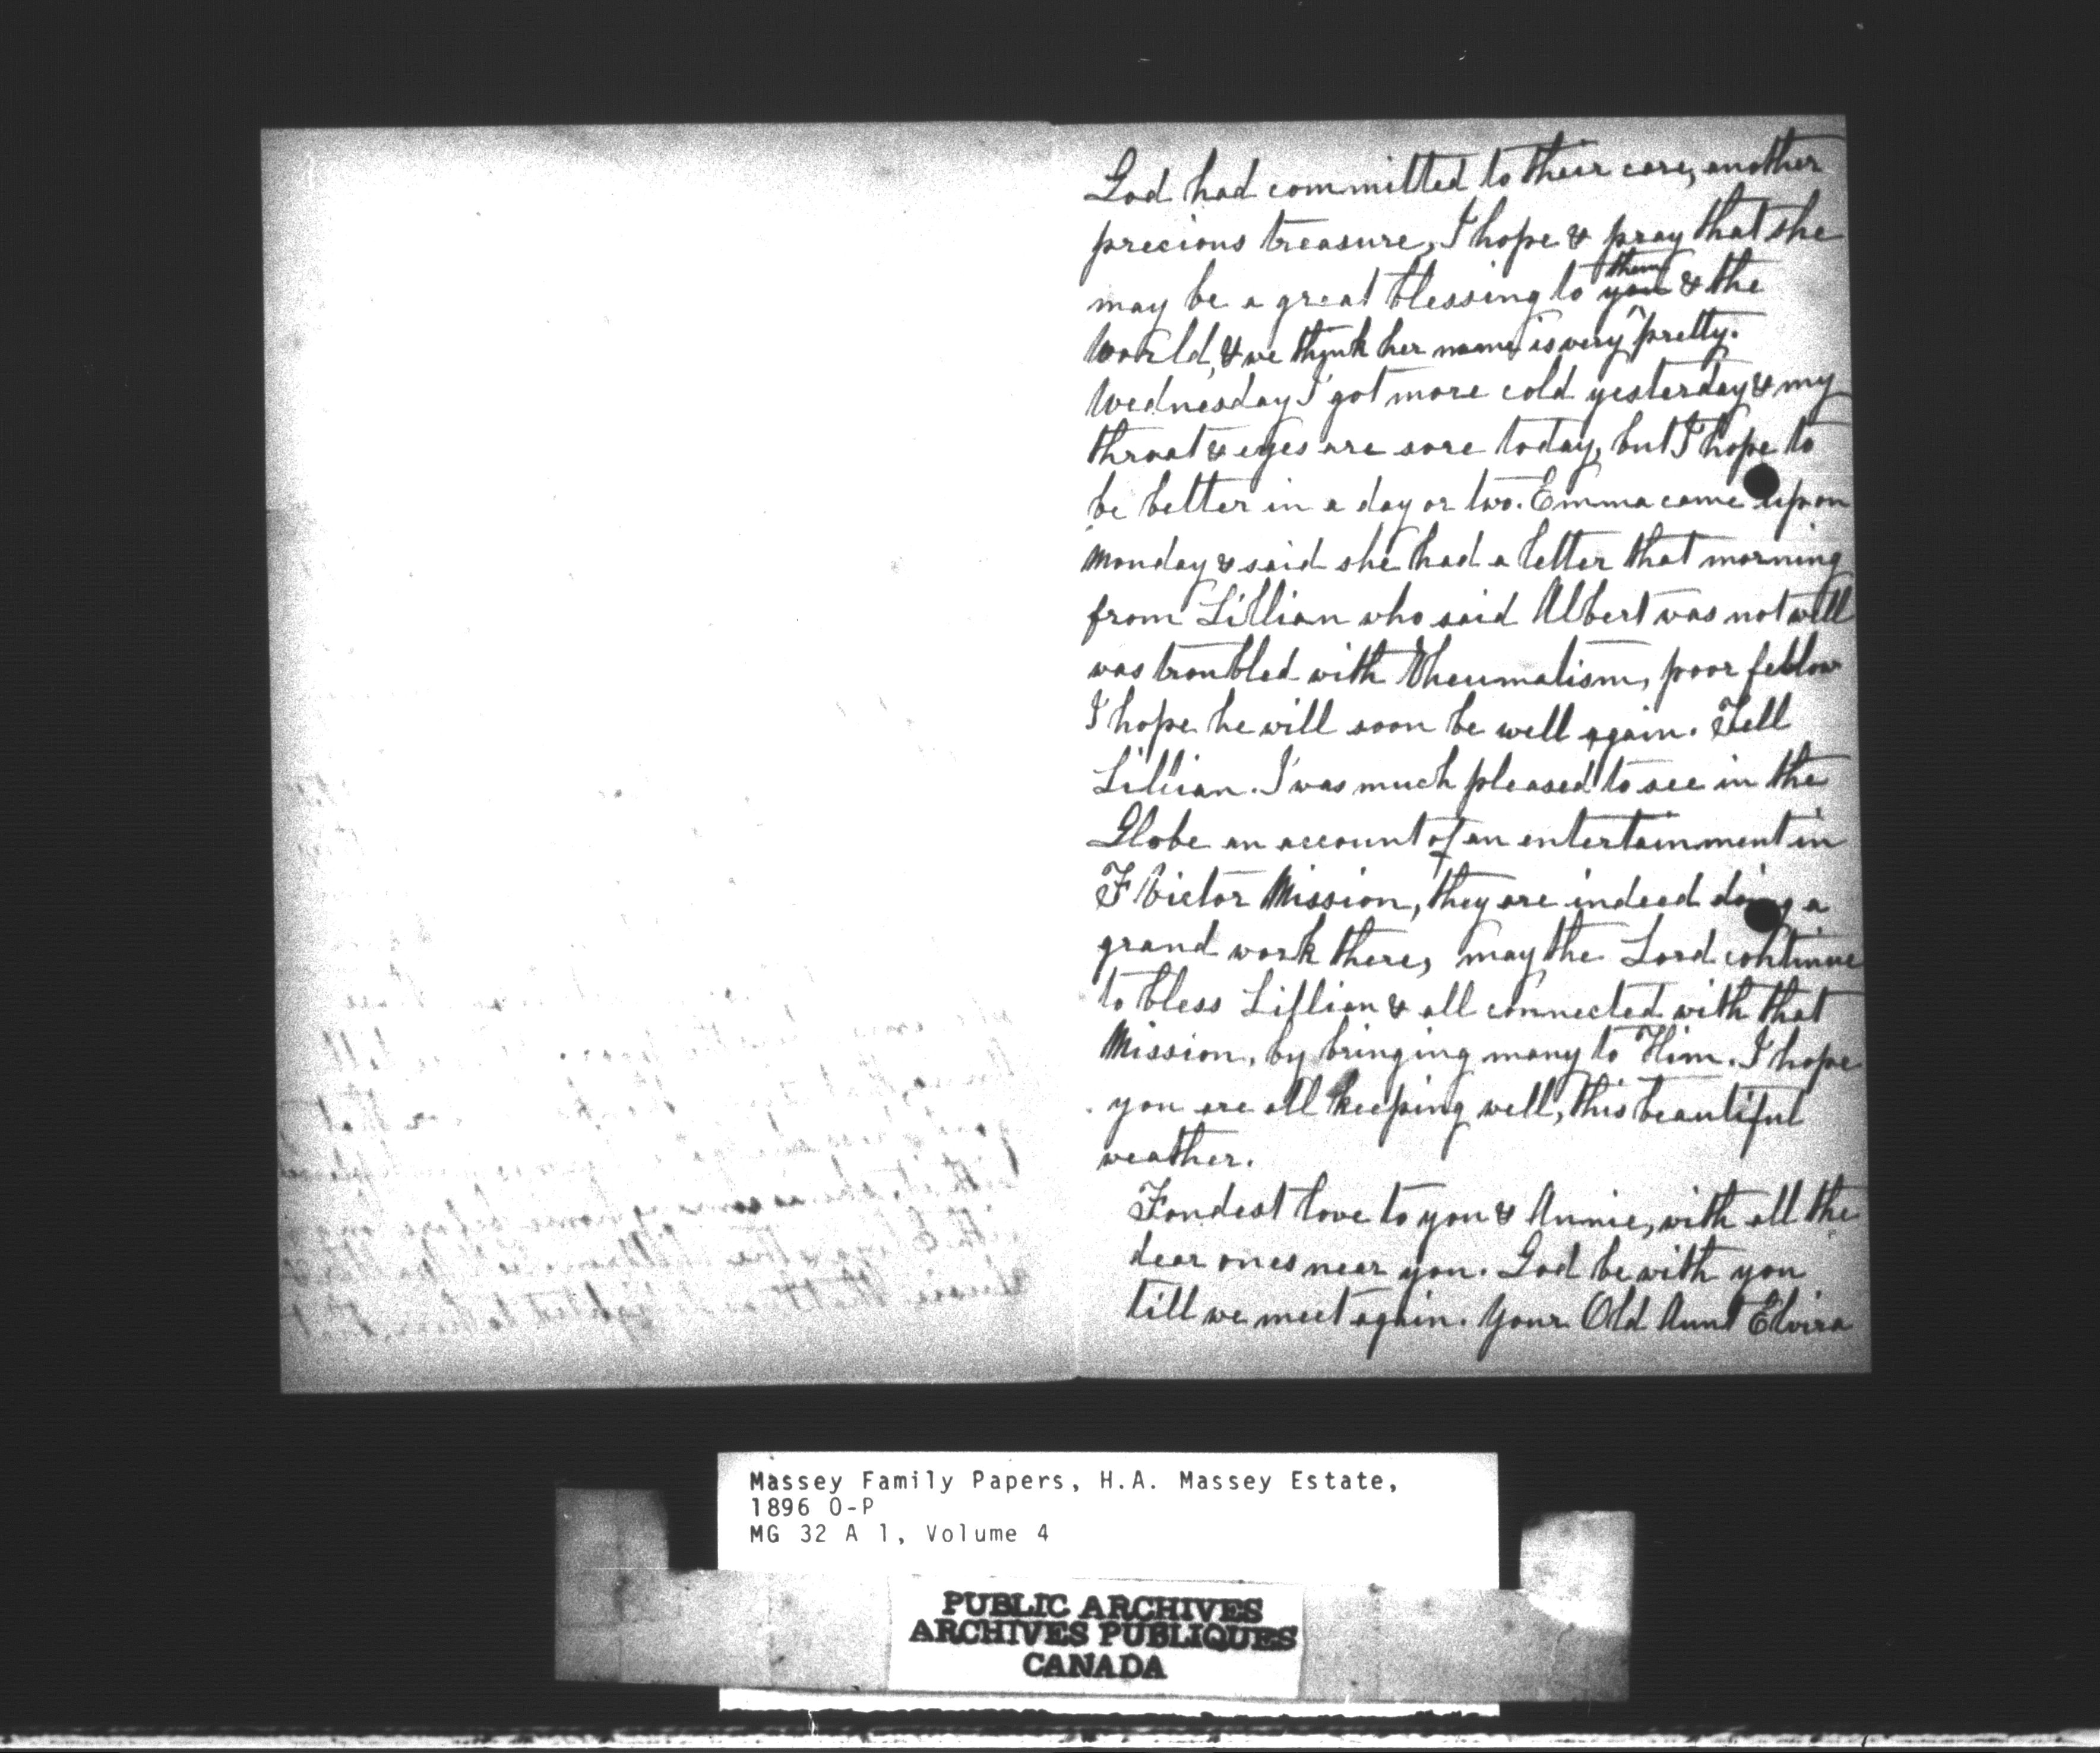 God had committed to their care, another
precious treasure, I hope & pray that she
may be a great blessing to you them & the
World, & we think her name is very pretty.
Wednesday I got more cold yesterday & my
throat & eyes are sore today, but I hope to
be better in a day or two. Emma came up on
Monday & said she had a letter that morning
from Lillian who said Albert was not well
was troubled with Rheumatism, poor fellow
I hope he will soon be well again. Tell
Lillian. I was much pleased to see in the
Globe an account of an entertainment in
F Victor Mission, they are indeed doing a
grand work there, may the Lord continue
to bless Lillian & all connected with that
Mission, by bringing many to Him. I hope
you are all keeping well, this beautiful
weather.
Fondest love to you & Annie, with all the
dear ones near you. God be with you
till we meet again. Your Old Aunt Elvira
Massey Family Papers, H.A. Massey Estate,
1896 O-P
MG 32 A 1, Volume 4
PUBLIC ARCHIVES
ARCHIVES PUBLIQUES
CANADA